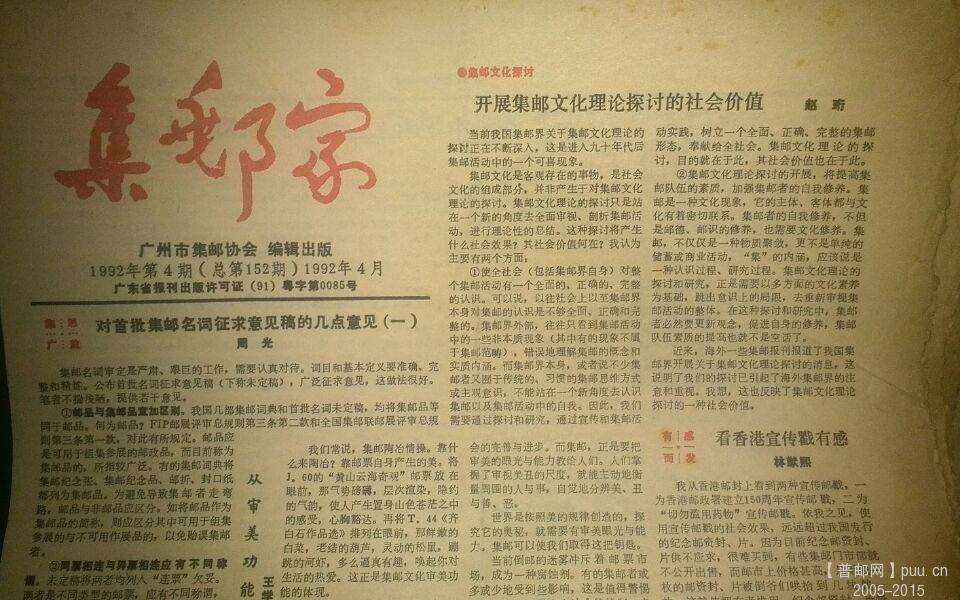 集邮家
广州市集邮协会 编辑出版
1992年第4期(总第152期)1992年4月
广东省报刊出版许可证(91)粤字第0085号
●集邮文化探讨
开展集邮文化理论探讨的社会价值
赵 珩
当前我国集邮界关于集邮文化理论的
探讨正在不断深入，这是进入九十年代后
集邮活动中的一个可喜现象。
集邮文化是客观存在的事物，是社会
文化的组成部分，并非产生于对集邮文化
理论的探讨。集邮文化理论的探讨只是站
在一个新的角度去全面审视、剖析集邮活
动，进行理论性的总结。这种探讨将产生
什么社会效果？其社会价值何在？我认为
主要有两个方面：
①使全社会(包括集邮界自身)对整
个集邮活动有一个全面的、正确的、完整
的认识。可以说，以往社会上以至集邮界
本身对集邮的认识是不够全面、正确和完
整的。集邮界外部，往往只看到集邮活动
中的一些非本质现象(其中有的现象不属
于集邮范畴)，错误地理解集邮的概念和
实质内涵。而集邮界本身，或者说不少集
邮者又囿于传统的、习惯的集邮思维方式
或主观意识，不能站在一个新角度去认识
集邮以及集邮活动中的自我。因此，我们
需要通过探讨和研究，通过宣传和集邮活
动实践，树立一个全面、正确、完整的集邮
形态，奉献给全社会。集邮文化理论的探
讨，目的就在于此，其社会价值也在于此。
②集邮文化理论探讨的开展，将提高集
邮队伍的素质，加强集邮者的自我修养。集
邮是一种文化现象，它的主体、客体都与文
化有着密切联系。集邮者的自我修养，不但
是邮德、邮识的修养，也需要文化修养。集
邮，不仅仅是一种物质聚敛，更不是单纯的
储蓄或商业活动，“集”的内涵，应该说是
一种认识过程、研究过程。集邮文化理论的探
讨和研究，正是需要以多方面的文化素养
为基础，跳出意识上的局限，去重新审视集
邮活动的整体。在这种探讨和研究中，集邮
者必然要更新观念，促进自身的修养，集邮
队伍素质的提高也就不是空话了。
近来，海外一些集邮报刊报道了我国集
邮界开展关于集邮文化理论探讨的消息，这
说明了我们的探讨已引起了海外集邮界的注
意和重视。我想，这也反映了集邮文化理论
探讨的一种社会价值。
集思
广益
对首批集邮名词征求意见稿的几点意见(一)
周 光
集邮名词审定是严肃、艰巨的工作，需要认真对待。词目和基本定义要准确、完
整和精炼。公布首批名词征求意见稿(下称未定稿)，广泛征求意见，这做法很好。
笔者不揣浅陋，提供若干意见。
①邮品与集邮品宜加区别。我国几部集邮词典和首批名词未定稿，均将集邮品等
同于邮品。何为邮品？FIP邮展评审总规则第三条第二款和全国集邮联邮展评审总规
则第三条第一款，对此有所规定。邮品应
是可用于组集参展的邮政品，而目前称为
集邮品的，所指较广泛。有的集邮词典将
集邮纪念张、集邮纪念品、邮折、封口纸
都列为集邮品。为避免导致集邮者走弯
路，邮品与非邮品应区分。如将邮品作为
集邮品的简称，则应区分其中可用于组集
参展的与不可用作展品的，以免贻误集邮
者。
②同票相连与异票相连应有不同称
谓。未定稿将两者均列入“连票”欠妥。
两者是不同类型的邮票，应有不同称谓，
从审美功能
我们常说，集邮陶冶情操，靠什
么来陶冶？靠邮票自身产生的美。将
J.60的“黄山云海奇观”邮票放在
眼前，那气势磅礴，层次渲染，隐约
的气韵，使人产生置身山色苍茫之中
的感受，心胸豁达。再将T.44《齐
白石作品选》排列在眼前，那鲜嫩的
白菜，老结的葫芦，灵动的松鼠，蹦
跳的河虾，多么逼真有趣，唤起你对
生活的热爱。这正是集邮文化审美功
能的体现。
会的完善与进步。而集邮，正是要把
审美的眼光与能力教给人们。人们掌
握了审视美丑的尺度，就能主动地衡
量周围的人与事，自觉地分辨美、丑
与善、恶。
世界是按照美的规律创造的，探
究它的奥秘，就需要有审美眼光与能
力。集邮可以使我们取得这把钥匙。
当前倒邮的迷雾冲斥着邮票市
场，成为一种腐蚀剂。有的集邮者或
多或少地受到些影响，这是值得警惕
有感
而发
看香港宣传戳有感
林猷熙
我从香港邮封上看到两种宣传邮戳，一
为香港邮政署建立150周年宣传邮戳，二为
“切勿滥用药物”宣传邮戳。依我之见，使
用宣传戳的社会效果，远远超过我国发行
的纪念邮资封、片。因为目前纪念邮资封、
片供不应求，很难买到，有些集邮门市部就
不公开出售，而邮市上价格甚高，
枚的邮资封、片被倒爷们哄抬到几块
【普邮网】puu.cn
2005-2015